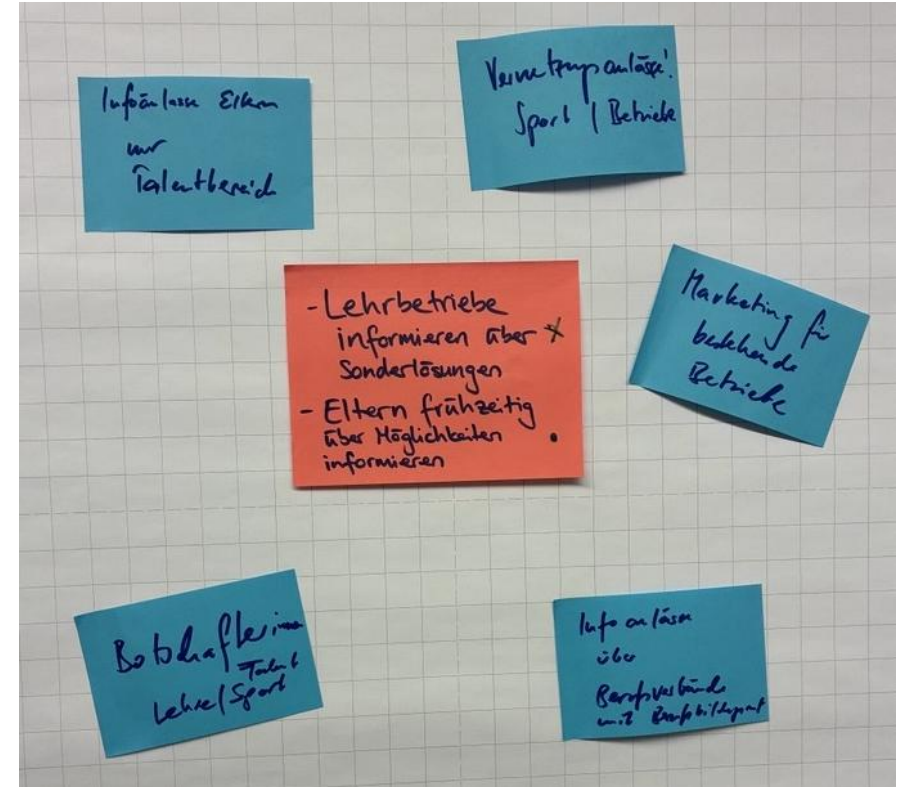 Infoanlässe Eltern
nur
Talentbereich
Vernetzungsanlässe!
Sport / Betriebe
- Lehrbetriebe
informieren über
Sonderlösungen
- Eltern frühzeitig
über Möglichkeiten
informieren
Marketing für
bestehende
Betriebe
Botschafterinnen
Talent
Lehre/Sport
Infoanlässe
über
Berufsverbände
mit Berufsbildungsamt